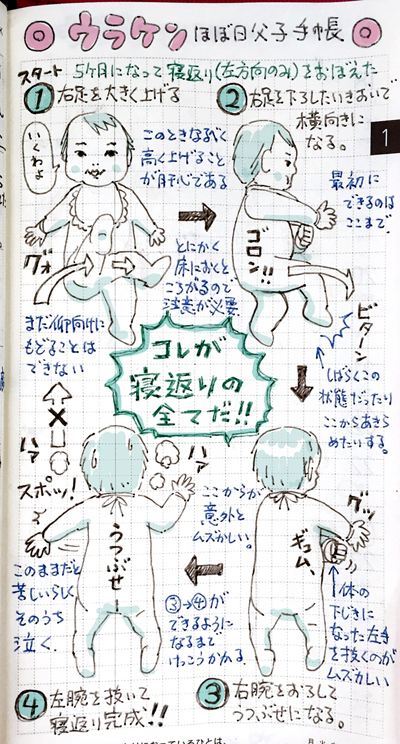 ウラケン ほぼ日父子手帳
スタート 5ヶ月になって寝返り(左方向のみ)をおぼえた
① 右足を大きく上げる
いくわよ
このときなるべく
高く上げること
が肝心である
グォ
とにかく
床におくと
ころがるので
注意が必要
まだ仰向けに
もどることは
できない
② 右足を下ろしたいきおいで
横向きに
なる。
1
最初に
できるのは
ここまで
ゴロン!!
ビターン
しばらくこの
状態だったり
ここからあきら
めたいする。
コレが
寝返りの
全てだ!!
グッ
ギュム、
↑体の
下じきに
なった左手
を抜くのが
ムズかしい
③ 右腕をおろして
うつぶせになる。
ここからが
意外と
ムズかしい。
③→④が
できるように
なるまで
けっこうかかる
ハァ
ハァ
スポッ!
うつぶせー
このままだと
苦しいらしく
そのうち
泣く.
④ 左腕を抜いて
寝返り完成!!